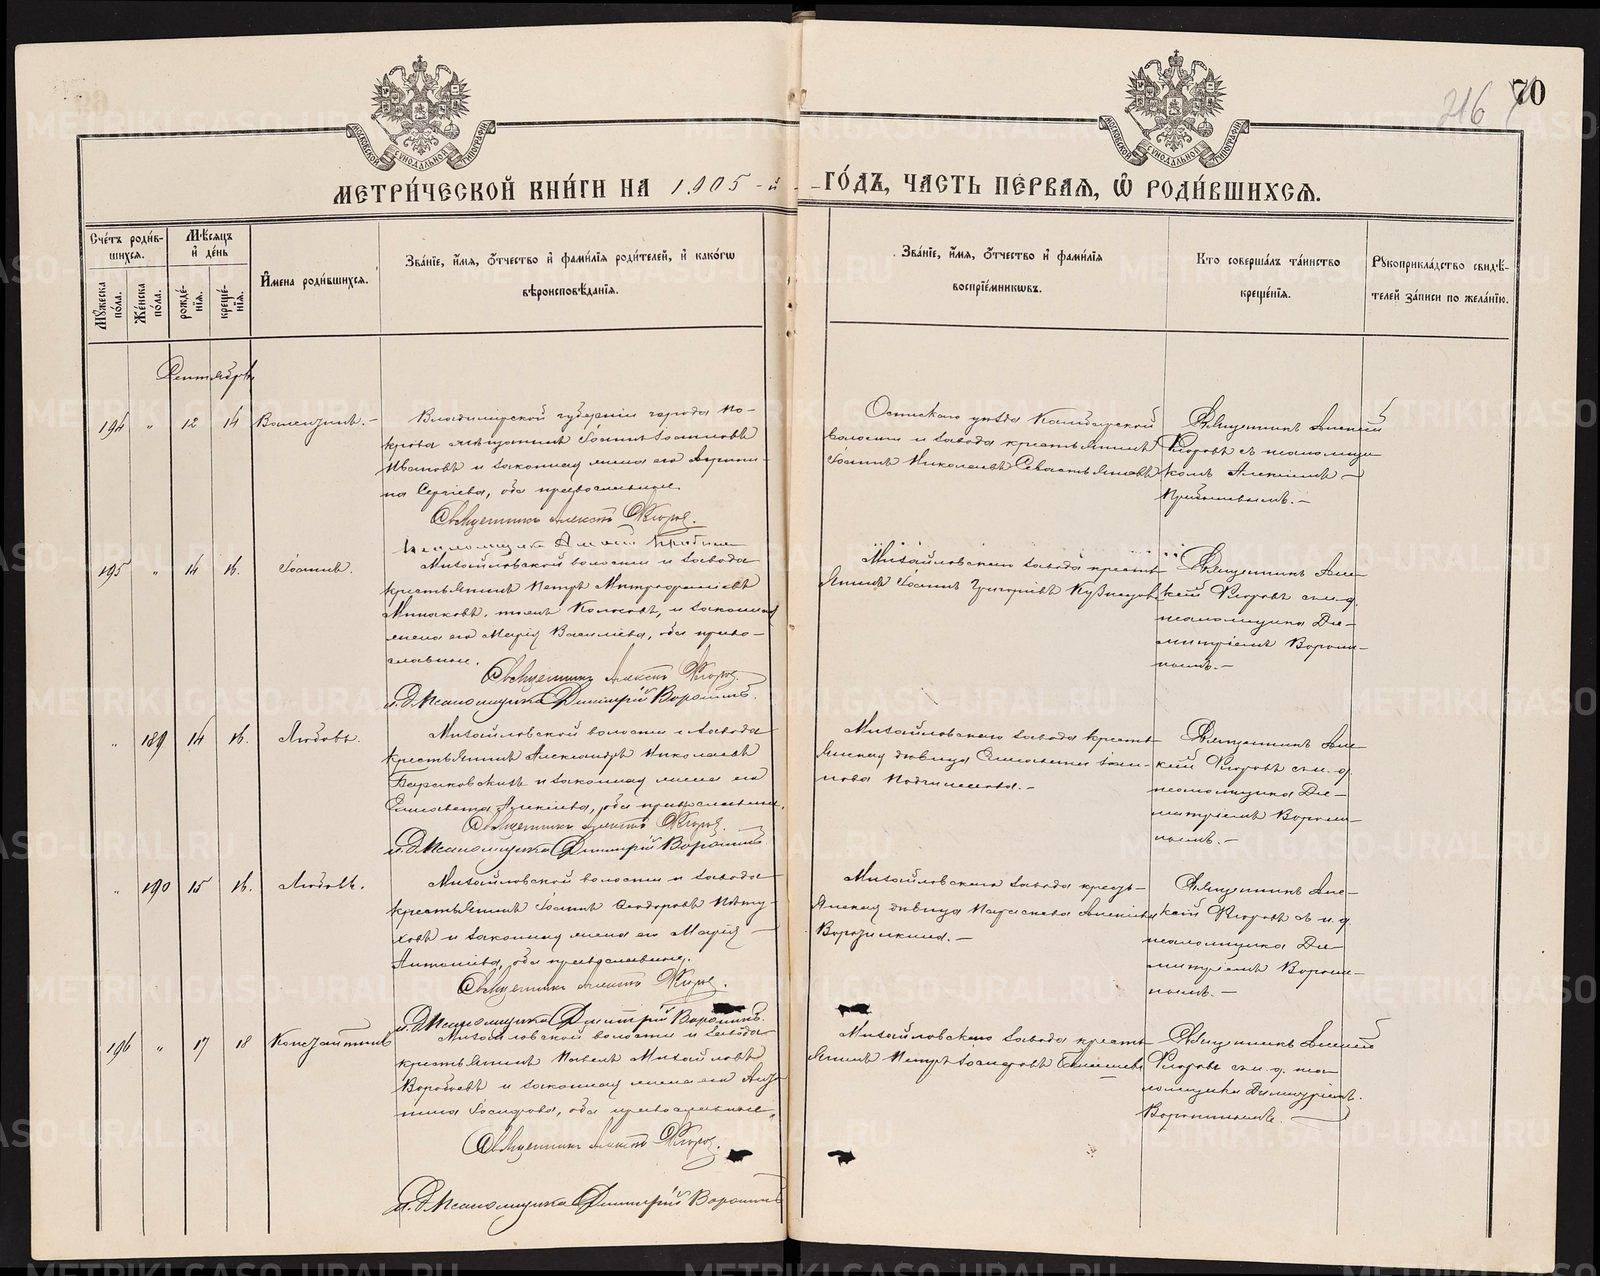 70
216
МЕТРИ́ЧЕСКОЙ КНИ́ГИ НА 1905-й ГО́ДЪ, ЧАСТЬ ПЕ́РВАЯ, Ѡ҆ РОДИ́ВШИХСѦ.
Сче́тъ роди́в-
шихсѧ.
Мѣ́сѧцъ
и҆ де́нь
Мꙋ́жеска
по́ла.
Же́нска
по́ла.
рожде́-
нїѧ.
креще́-
нїѧ.
И҆мена̀ роди́вшихсѧ.
Зва́нїе, и҆́мѧ, ѻ҆́тчество и҆ фами́лїѧ роди́телей, и҆ како́гѡ
вѣроисповѣ́данїѧ.
Зва́нїе, и҆́мѧ, ѻ҆́тчество и҆ фами́лїѧ
воспрїе́мникѡвъ.
Кто̀ соверша́лъ та́инство
креще́нїѧ.
Рꙋкоприкла́дство свидѣ́-
телей за́писи по жела́нїю.
Сентябрь
194 " 12 14 Валентинъ.-
Владимірской губерніи города По-
крова мѣщанинъ Іоаннъ Іоанновъ
Ивановъ и законная жена его
на Сергіева, оба православные.
Священникъ Алексій Флоровъ.
Осинскаго уѣзда Камбарской
волости и завода крестьянинъ
Іоаннъ Николаевъ Севастьяновъ
Священникъ Алексій
Флоровъ съ псаломщи-
комъ Алексіемъ
195 " 14 16. Іоаннъ.
Михайловской волости и завода
крестьянинъ Петръ Митрофановъ
и законная
жена его Марія Василіева, оба право-
славные.
Священникъ Алексій Флоровъ.
и. д. Псаломщика Димитрій Воронинъ.
Михайловскаго завода кресть-
янинъ Іоаннъ Григоріевъ Кузнецовъ
Священникъ Але-
ксій Флоровъ съ и. д.
псаломщика Ди-
митріемъ Ворони-
нымъ.-
" 189 14 16. Любовь.
Михайловской волости и завода
крестьянинъ Александръ Николаевъ
и законная жена его
Елисавета Алексіева, оба православные.
Священникъ Алексій Флоровъ.
и. д. Псаломщика Димитрій Воронинъ
Михайловскаго завода кресть-
янская дѣвица Елисавета Іоан-
нова
Священникъ Але-
ксій Флоровъ съ и. д.
псаломщика Ди-
митріемъ Ворони-
нымъ.-
" 190 15 16. Любовь.
Михайловской волости и завода
крестьянинъ Іоаннъ Ѳеодоровъ Пѣту-
ховъ и законная жена его Марія
Антоніева, оба православные.
Священникъ Алексій Флоровъ.
и. д. Псаломщика Димитрій Воронинъ.
Михайловскаго завода кресть-
янская дѣвица Параскева Алексіева
Священникъ Але-
ксій Флоровъ съ и. д.
псаломщика Ди-
митріемъ Ворони-
нымъ.-
196 " 17 18 Константинъ
Михайловской волости и завода
крестьянинъ Павелъ Михайловъ
Воробьевъ и законная жена его Анто-
нина Іосифова, оба православные.
Священникъ Алексій Флоровъ.
и. д. Псаломщика Димитрій Воронинъ
Михайловскаго завода кресть-
янинъ Петръ Іосифовъ
Священникъ Алексій
Флоровъ съ и. д. пса-
ломщика Димитріемъ
Воронинымъ.
METRIKI.GASO-URAL.RU